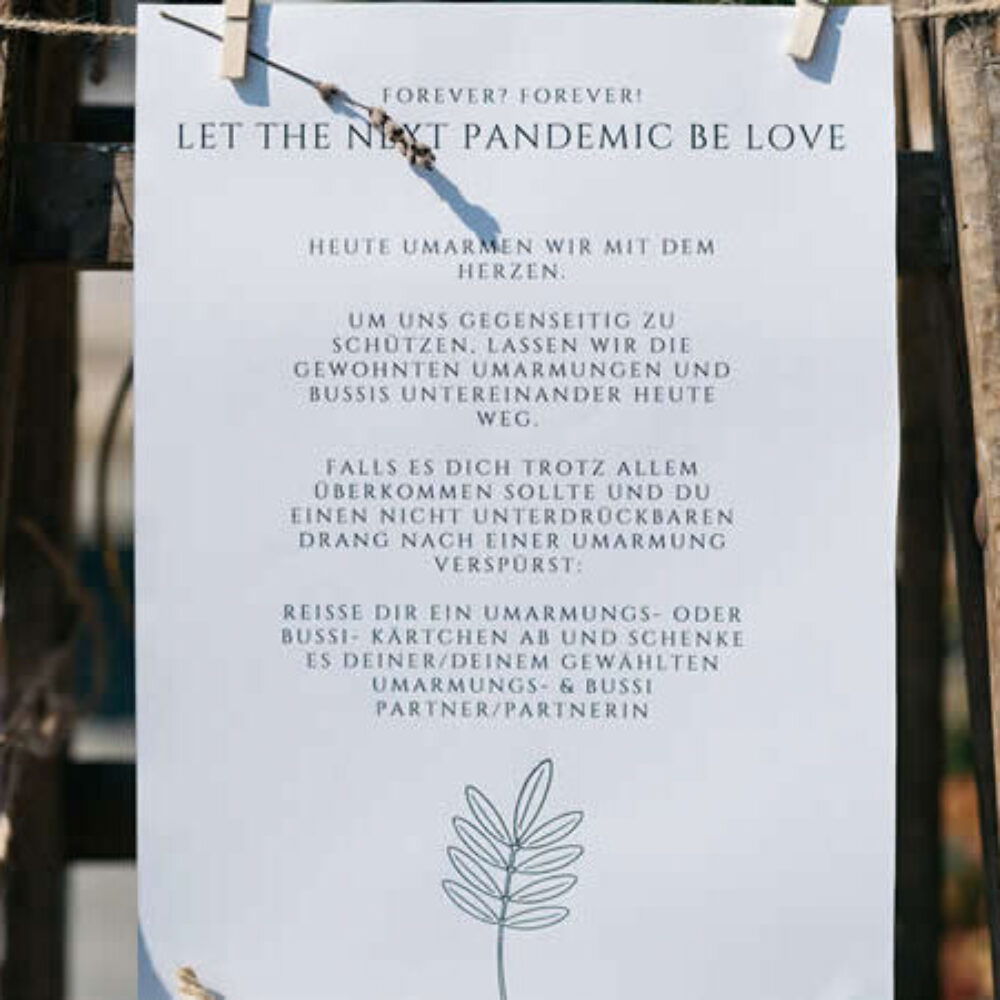 FOREVER? FOREVER!
LET THE NEXT PANDEMIC BE LOVE
HEUTE UMARMEN WIR MIT DEM
HERZEN.
UM UNS GEGENSEITIG ZU
SCHÜTZEN, LASSEN WIR DIE
GEWOHNTEN UMARMUNGEN UND
BUSSIS UNTEREINANDER HEUTE
WEG.
FALLS ES DICH TROTZ ALLEM
ÜBERKOMMEN SOLLTE UND DU
EINEN NICHT UNTERDRÜCKBAREN
DRANG NACH EINER UMARMUNG
VERSPÜRST:
REISSE DIR EIN UMARMUNGS- ODER
BUSSI- KÄRTCHEN AB UND SCHENKE
ES DEINER/DEINEM GEWÄHLTEN
UMARMUNGS- & BUSSI
PARTNER/PARTNERIN